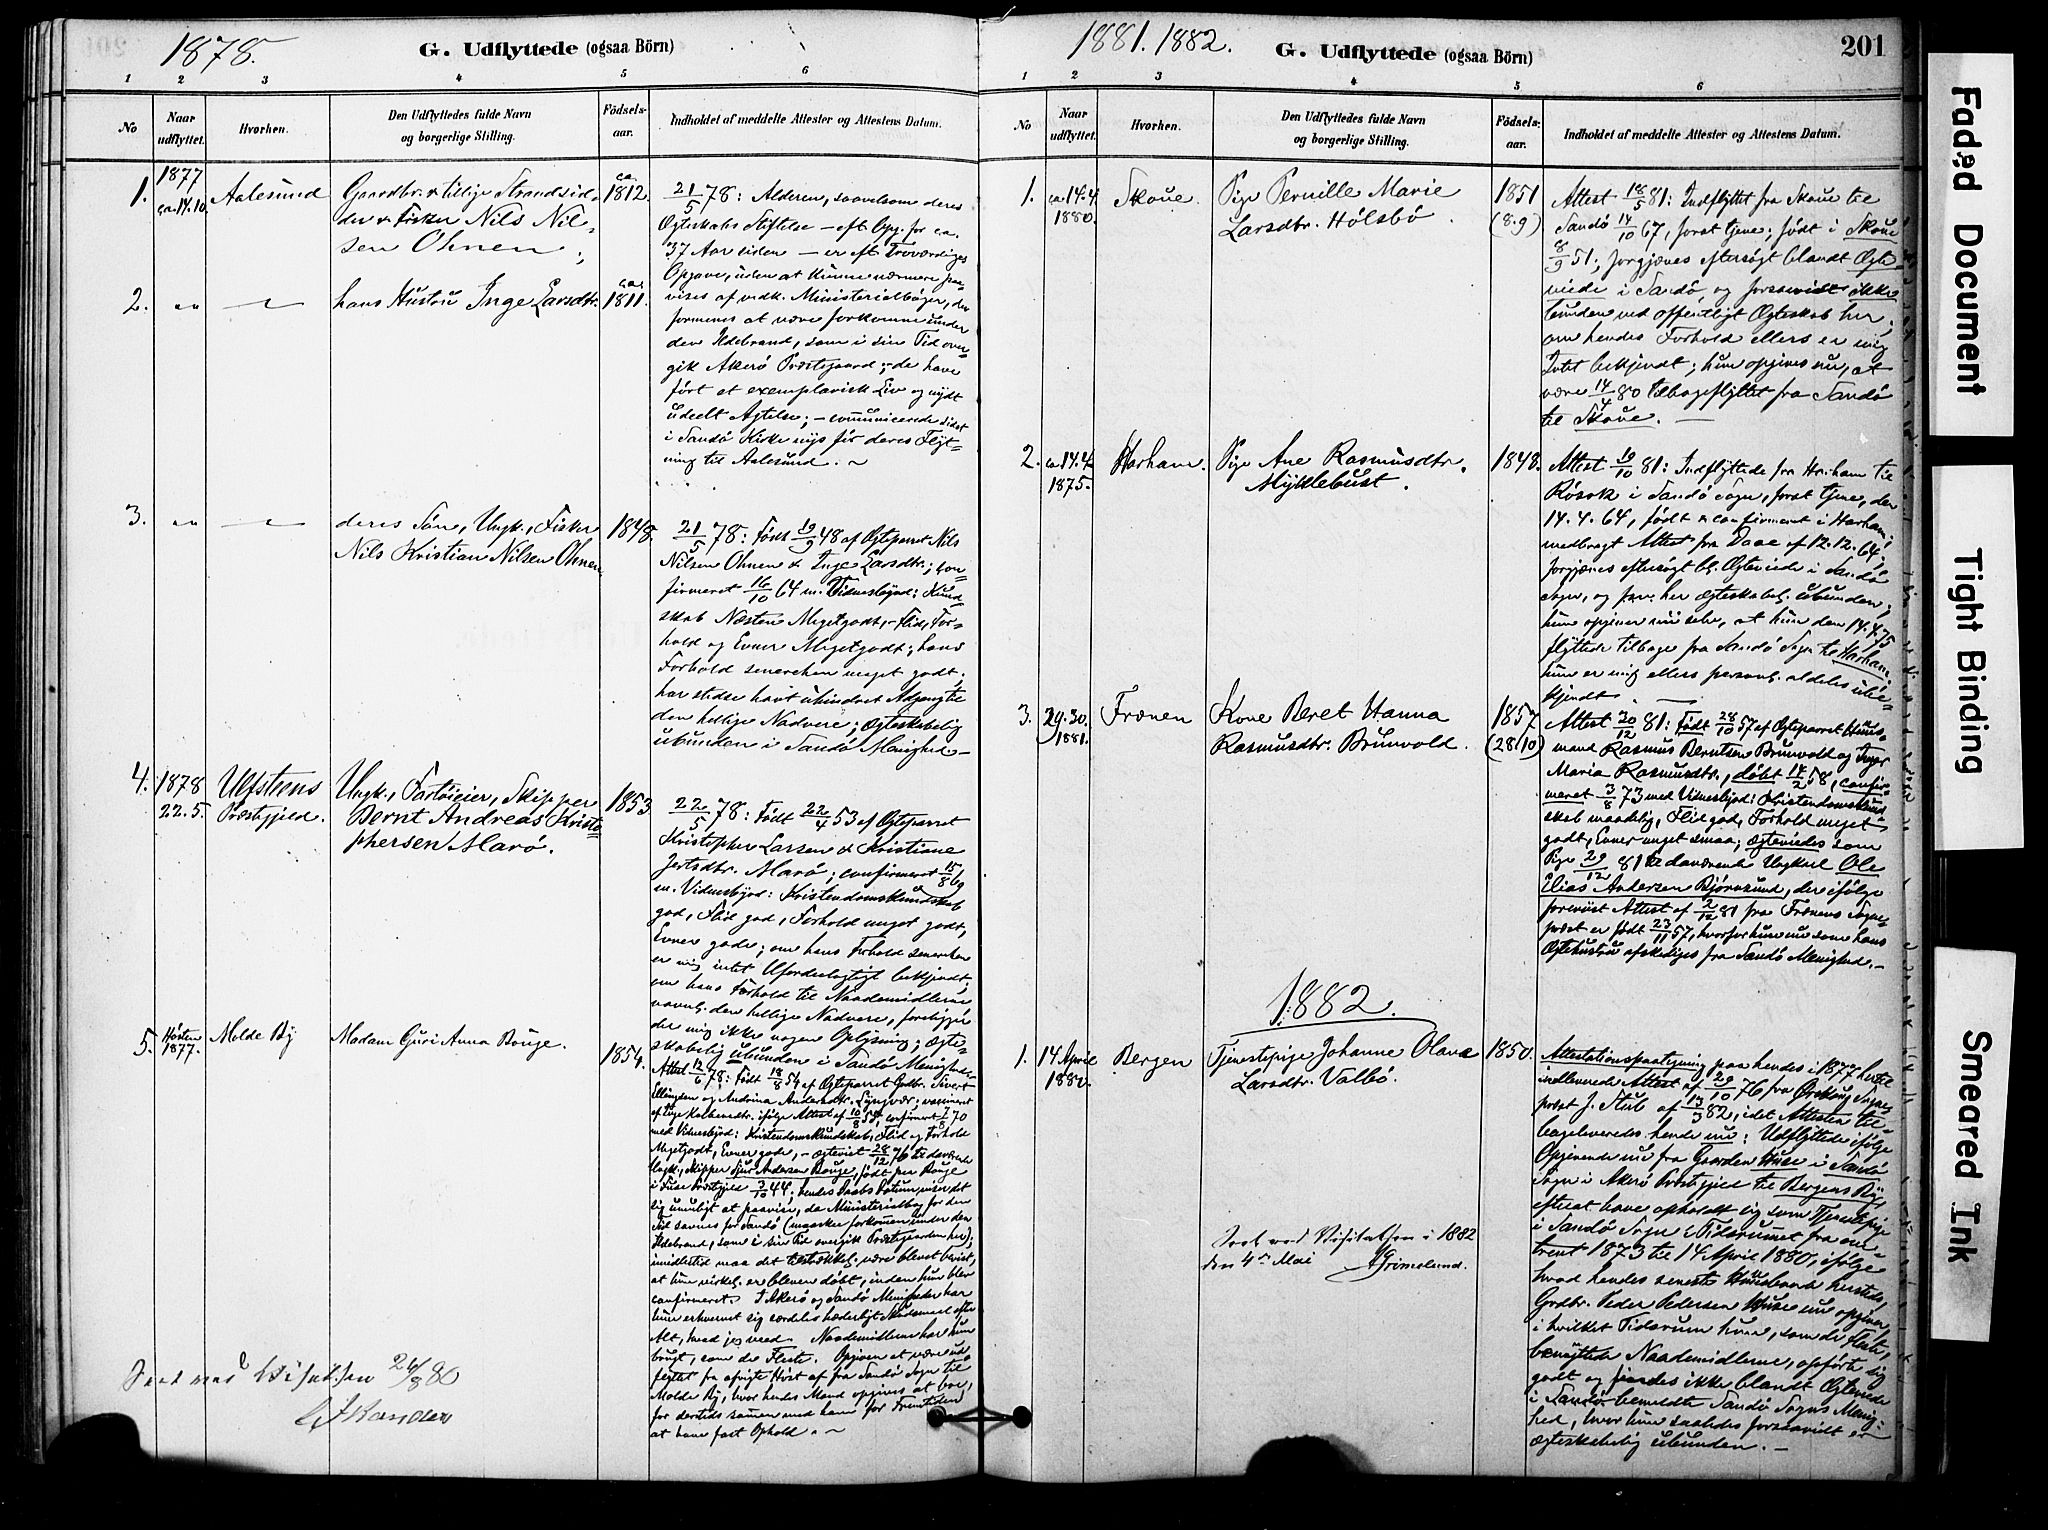 1878.
G. Udflyttede (ogsaa Börn)
1 2 3 4 5 6
No
Naar udflyttet.
Hvorhen.
Den Udflyttedes fulde Navn og borgerlige Stilling.
Födsels-aar.
Indholdet af meddelte Attester og Attestens Datum.
1.
1877
ca. 14.10.
Aalesund
Gaardbr. & tillige Strandsid-
der & Fisker Nils Nil-
sen Ohnen;
ca.
1812.
21/5 78: Alderen, saavelsom deres
Ægteskabs Stiftelse – eft. Opg. for ca.
37 Aar siden – er eft. Troværdiges
Opgave, uden at kunne nærmere paa-
vises af vedk. Ministerialbøger, der
formenes at være forkomne under
den Ildebrand, som i sin Tid over-
gik Akerö Præstegaard; – de have
ført et exemplarisk Liv og nydt
udeelt Agtelse; – communicerede sidst
i Sandö Kirke nys før deres Flyt-
ning til Aalesund. ~
2.
hans Hustru Inge Larsdtr.
ca.
1811.
3.
deres Søn, Ungk., Fisker
Nils Kristian Nilsen Ohnen
1848.
21/5 78: Født 19/9 48 af Ægteparret Nils
Nilsen Ohnen & Inge Larsdtr.; con-
firmeret 16/10 64 m. Vidnesbyrd: Kund-
skab Næsten Megetgodt, – Flid, For-
hold og Evner Megetgodt; hans
Forhold senerehen meget godt;
har stedse havt uhindret Adgang til
den hellige Nadvere; ægteskabelig
ubunden i Sandö Menighed. –
4.
1878
22.5.
Ulfsteens
Præstegjeld.
Ungk., Fartøieier, Skipper
Bernt Andreas Kristo-
phersen Marö.
1853.
22/5 78: Født 22/4 53 af Ægteparret
Kristopher Larsen & Kristiane
Jertsdtr. Marö; confirmeret 15/8 69
m. Vidnesbyrd: Kristendomskundskab
god, Flid god, Forhold meget godt,
Evner gode; om hans Forhold senerehen
er mig intet Ufordelagtigt bekjendt;
om hans Forhold til Naademidlerne
navnl. den hellige Nadvere, foreligger
der mig ikke nogen Oplysning; ægte-
skabelig ubunden i Sandö Menighed. –
5.
Høsten
1877.
Molde By
Madam Guri Anna Bouge.
1854.
Attest 12/6 78: Født 18/8 54 af Ægteparret Gdbr. Sivert
Ellingsen og Andrina Andersdtr. Lyngvær; vaccineret
af Inge Kolbensdtr. ifølge Attest af 10/8 54, confirmeret 7/8 70
med Vidnesbyrd: Kristendomskundskab, Flid og Forhold
Megetgodt, Evner gode, – ægteviet 28/12 76 til daværende
Ungk., Skipper Sjur Andersen Bouge, født paa Bouge
i Fuse Præstegjeld 3/10 44; hendes Daabs Datum viser det
sig umuligt at paavise, da Ministerialbog for den
Tid savnes for Sandö (maaskee forkommen under den
Ildebrand, som i sin Tid overgik Præstegaarden her);
imidlertid maa det tilstrækkel. være blevet bevist,
at hun virkel. er bleven døbt, inden hun blev
confirmeret. I Akerö og Sandö Menigheder har
hun erhvervet sig særdeles hæderligt Skudsmaal efter
Alt, hvad jeg veed. Naademidlerne har hun
brugt, som de Fleste. Opgives at være ud-
flyttet fra afvigte Høst af fra Sandö Sogn til
Molde By, hvor hendes Mand opgives at boe,
for dersteds sammen med ham for Fremtiden
at have fast Ophold. ~
Seet ved Visitatsen 24/8 80
1881. 1882.
G. Udflyttede (ogsaa Börn)
201
1 2 3 4 5 6
No
Naar udflyttet.
Hvorhen.
Den Udflyttedes fulde Navn og borgerlige Stilling.
Födsels-aar.
Indholdet af meddelte Attester og Attestens Datum.
1.
ca. 14.4.
1880.
Skoue.
Pige Pernille Marie
Larsdtr. Hølsbö.
1851
(8.9)
Attest 18/5 81: Indflyttet fra Skoue til
Sandö 14/10 67, forat tjene; født i Skoue
8/9 51; forgjæves eftersøgt blandt Ægte-
viede i Sandö, og forsaavidt ikke
bunden ved offentligt Ægteskab her;
om hendes Forhold ellers er mig
Intet bekjendt; hun opgives nu, at
være 14/4 80 tilbageflyttet fra Sandö
til Skoue. –
2.
ca. 14.4.
1875.
Harham.
Pige Ane Rasmusdtr.
Myklebust.
1848.
Attest 19/10 81: Indflyttede fra Harham til
Røsok i Sandö Sogn, forat tjene, den
14.4.64, født & confirmeret i Harham;
medbragt Attest fra Daae af 12.12.64;
forgjæves eftersøgt bl. Ægteviede i Sandö
Sogn, og forv. her ægteskabel. ubunden;
hun opgiver nu selv, at hun den 14.4.75
flyttede tilbage fra Sandö Sogn til Harham;
hun er mig ellers personl. aldeles ube-
kjendt –
3.
29.30.
1881.
Frænen
Kone Beret Hanna
Rasmusdtr. Brunvold.
1857
(28/10)
Attest 30/12 81: Født 28/10 57 af Ægteparret Huus-
mand Rasmus Berntsen Brunvold og Inger
Maria Rasmusdtr., døbt 14/2 58, confir-
meret 3/8 73 med Vidnesbyrd: Kristendomskund-
skab maadelig, Flid god, Forhold meget
godt, Evner meget smaa; ægteviedes som
Pige 29/12 81 til daværende Ungkarl Ole
Elias Andersen Bjørnsund, der ifølge
forevist Attest af 2/12 81 fra Frænens Sogne-
præst er født 23/11 57, hvorfor hun nu som hans
Ægtehustru afskediges fra Sandö Menighed. –
1882.
1.
14 April
1880.
Bergen
Tjenestepige Johanne Olava
Larsdtr. Valbö.
1850.
Attestationspaategning paa hendes i 1877 hertil
indleverede Attest af 29/10 76 fra Ørskoug Sogne-
præst J. Stub af 13/3 82, idet Attesten til-
bageleveredes hende nu: Udflyttede ifølge
Opgivende nu fra Gaarden Huse i Sandö
Sogn i Akerö Præstegjeld til Bergens By,
efterat have opholdt sig som Tjenestepige
i Sandö Sogn i Tidsrummet fra om-
trent 1873 til 14 April 1880, ifølge
hvad hendes seneste Huusbonde hersteds,
Grdbr. Peder Pedersen Huse nu opgiver,
i hvilket Tidsrum hun, som de fleste,
benyttede Naademidlerne, opførte sig
godt og fandes ikke blandt Ægteviede
i Sandö bemeldte Sandö Sogns Menig-
hed, hvor hun saaledes forsaavidt er
ægteskabelig ubunden. –
Seet ved Visitatsen i 1882
den 4de Mai Grimelund.
Faded Document
Tight Binding
Smeared Ink